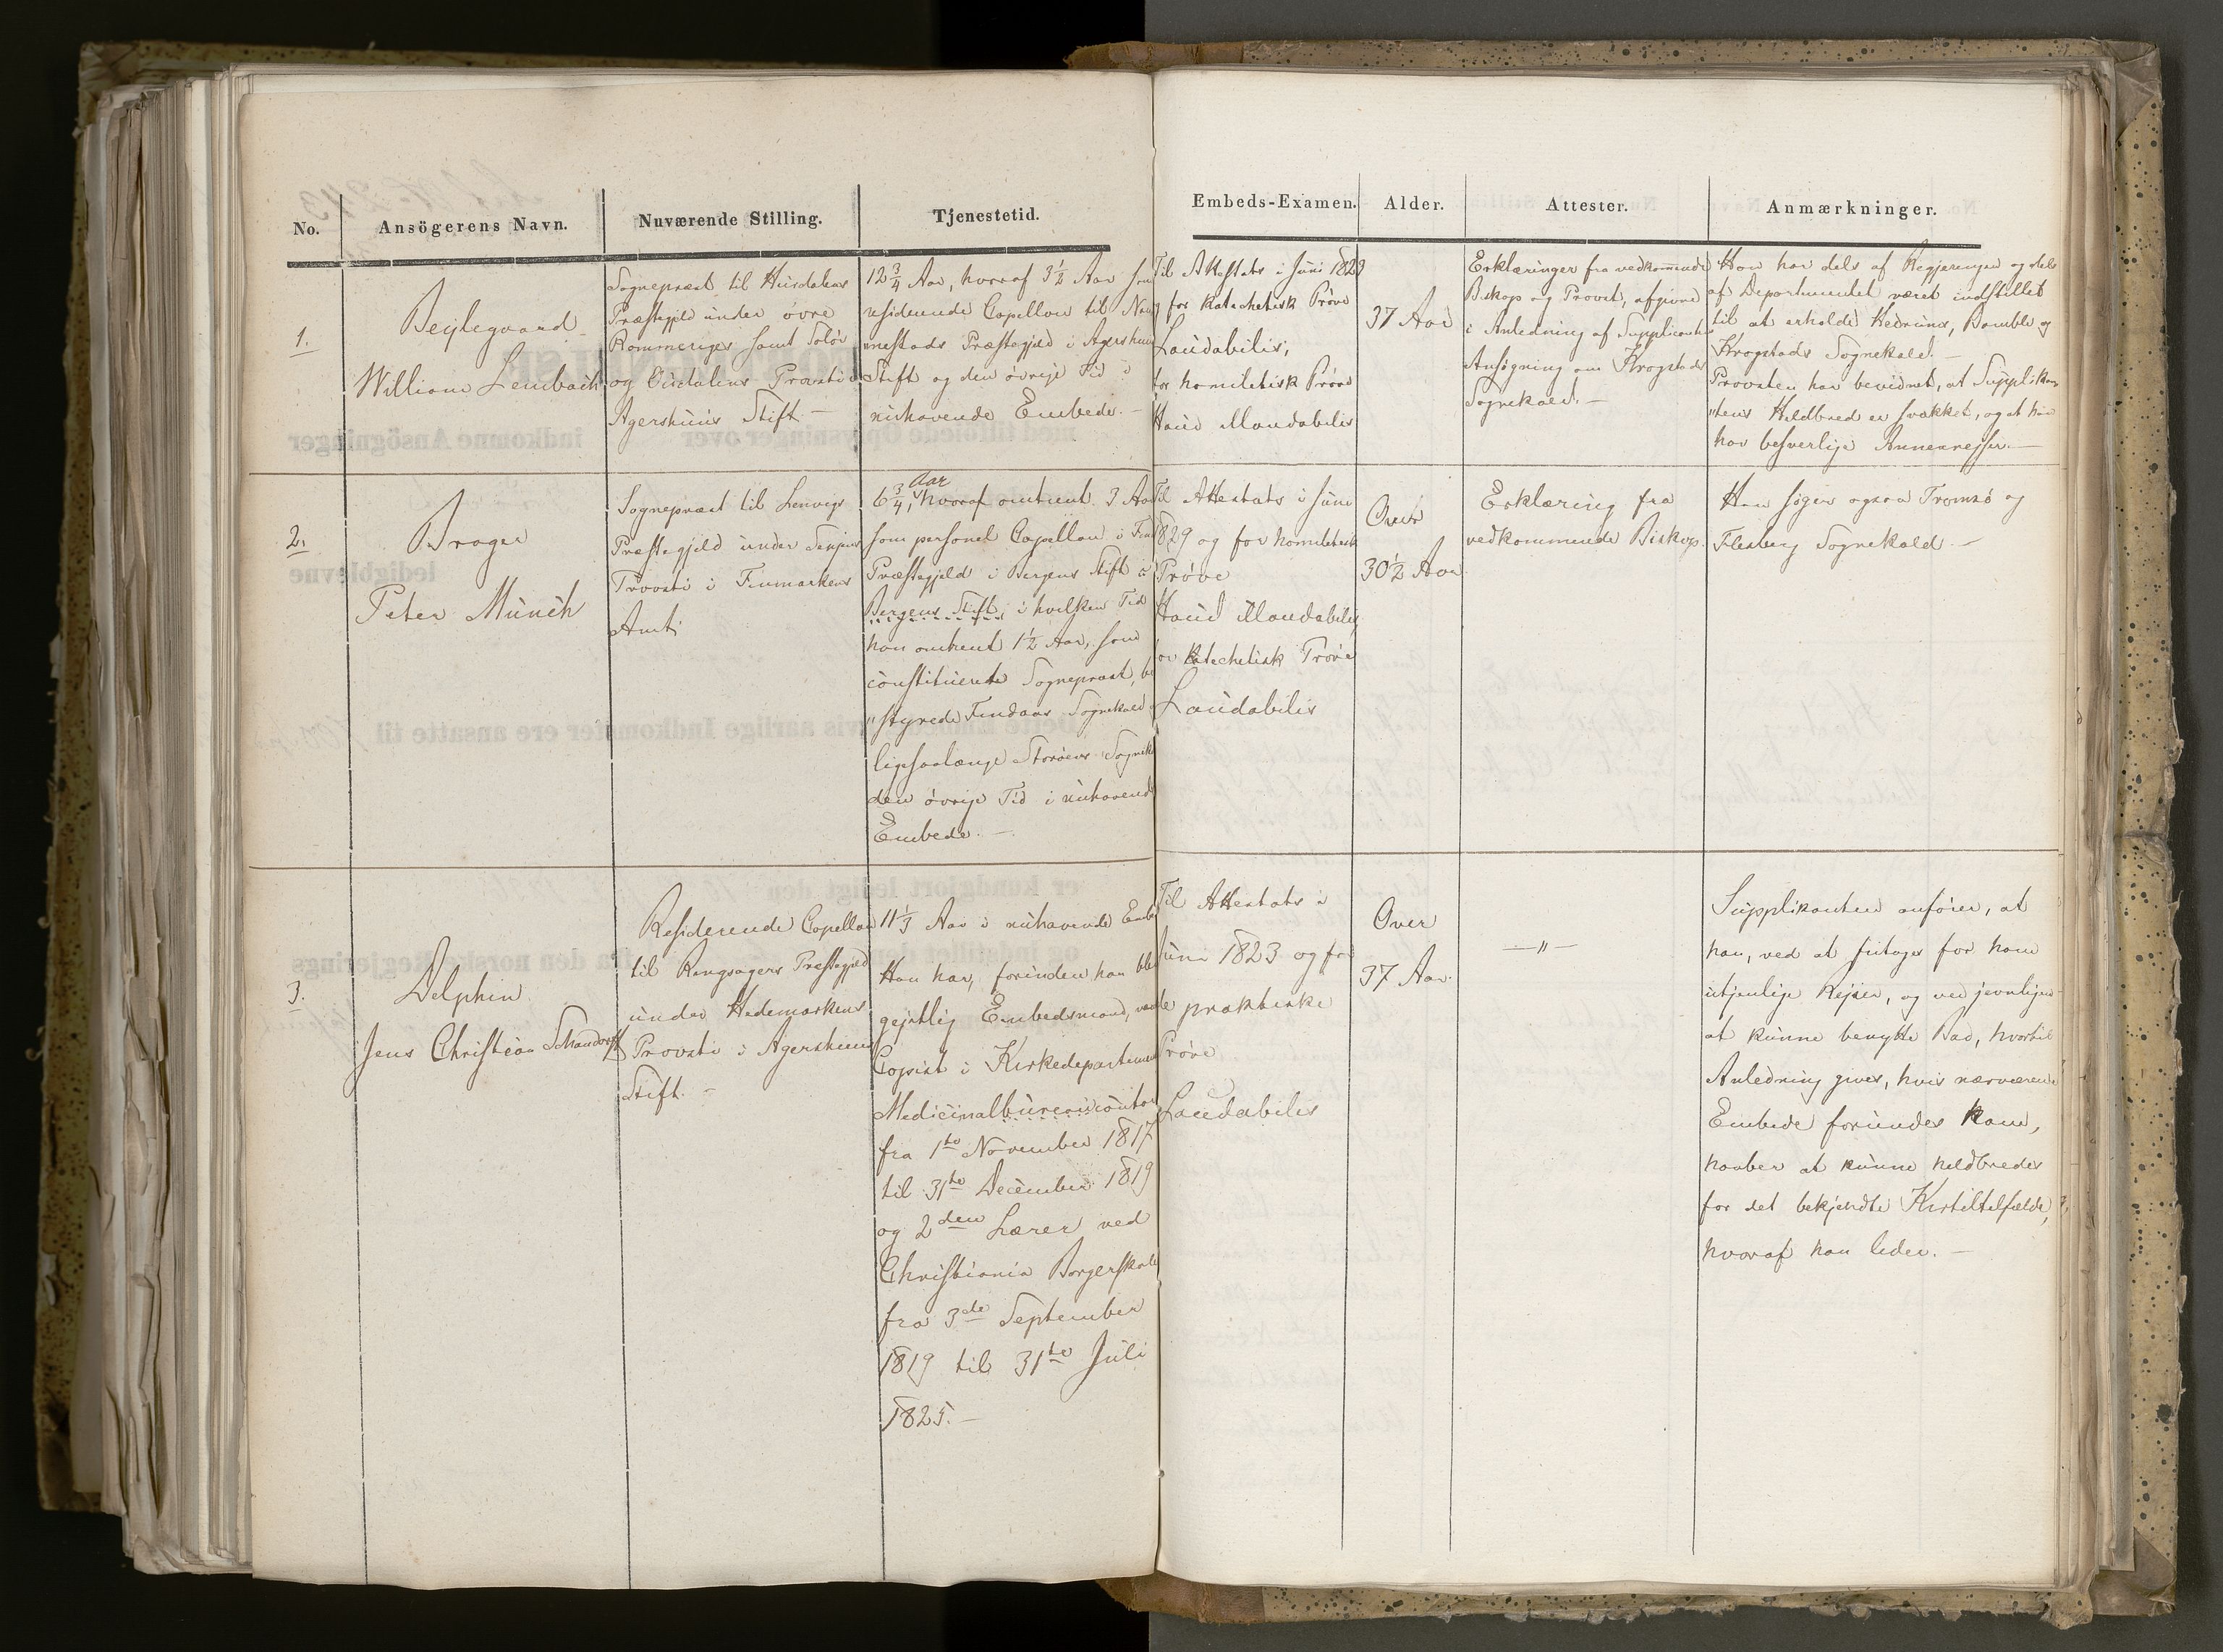 No.
Ansögerens Navn.
Nuværende Stilling.
Tjenestetid.
Embeds-Examen.
Alder.
Attester.
Anmærkninger.
1.
Bejlegaard
William Lembach
Sognepræst til Hurdalens
Præstegjeld under övre
Rommeriges samt Solör
og Ousdalens Provsti i
Agershuus Stift. —
12 3/4 Aar, hvoraf 3 1/2 Aar som
residerende Capellan til Nan
nestads Præstegjeld i Agershuus
Stift og den övrige Tid i
nuhavende Embede. —
Til Attestats i Juni 1823
for katechetisk Pröve
Laudabilis,
for homiletisk Pröve
Haud illaudabilis
37 Aar
Erklæringer fra vedkommende
Biskop og Provst, afgivne
i Anledning af Supplicantens
Ansögning om Krogstads
Sognekald. —
Han har dels af Regjeringen og dels
af Departementet været indstillet
til at erholde Hedrums, Bamble og
Krogstads Sognekald. —
Provsten har bevidnet, at Supplikan
"tens Helbred er svækket, og at han
har besværlige Annexrejser. —
2.
Brager
Peter Munch
Sognepræst til Lenvigs
Præstegjeld under Senjens
Provsti i Finmarkens
Amt.
Aar
6 3/4, hvoraf omtrent 3 Aar
som personel Capellan i
Præstegjeld i Bergens Stift i
Bergens Stift, i hvilken Tid
han omtrent 1 1/2 Aar, som
constitueret Sognepræst, be
"styrede Findaas Sognekald
ligesaalænge Storöens Sognek
den övrige Tid i nuhavende
Embede. —
Til Attestats i Juni
1829 og for homiletisk
Pröve
Haud illaudabilis,
for katechetisk Pröve
Laudabilis
Over
30 1/2 Aar
Erklæring fra
vedkommende Biskop.
Han söger ogsaa Tromsö og
Flesberg Sognekald. —
3.
Delphin
Jens Christian Schandorff
Residerende Capellan
til Ringsagers Præstegjeld
under Hedemarkens
Provsti i Agershuus
Stift. —
11 1/3 Aar i nuhavende Embe
Han har, forinden han blev
gejstlig Embedsmand, været
Copist i Kirkedepartement
Medicinalbureaucontor
fra 1ste November 1817
til 31te December 1819
og 2den Lærer ved
Christiania Borgerskole
fra 3de September
1819 til 31te Juli
1825. —
Til Attestats i
Juni 1823 og for
de praktiske
Pröve
Laudabilis
Over
37 Aar.
— " —
Supplikanten anförer, at
han, ved at fritages for ham
utjenlige Rejser, og ved jevnligen
at kunne benytte Bad, hvortil
Anledning gives, hvis nærværende
Embede forundes ham,
haaber at kunne helbredes
for det bekjendte Kirteltilfælde,
hvoraf han lider. —